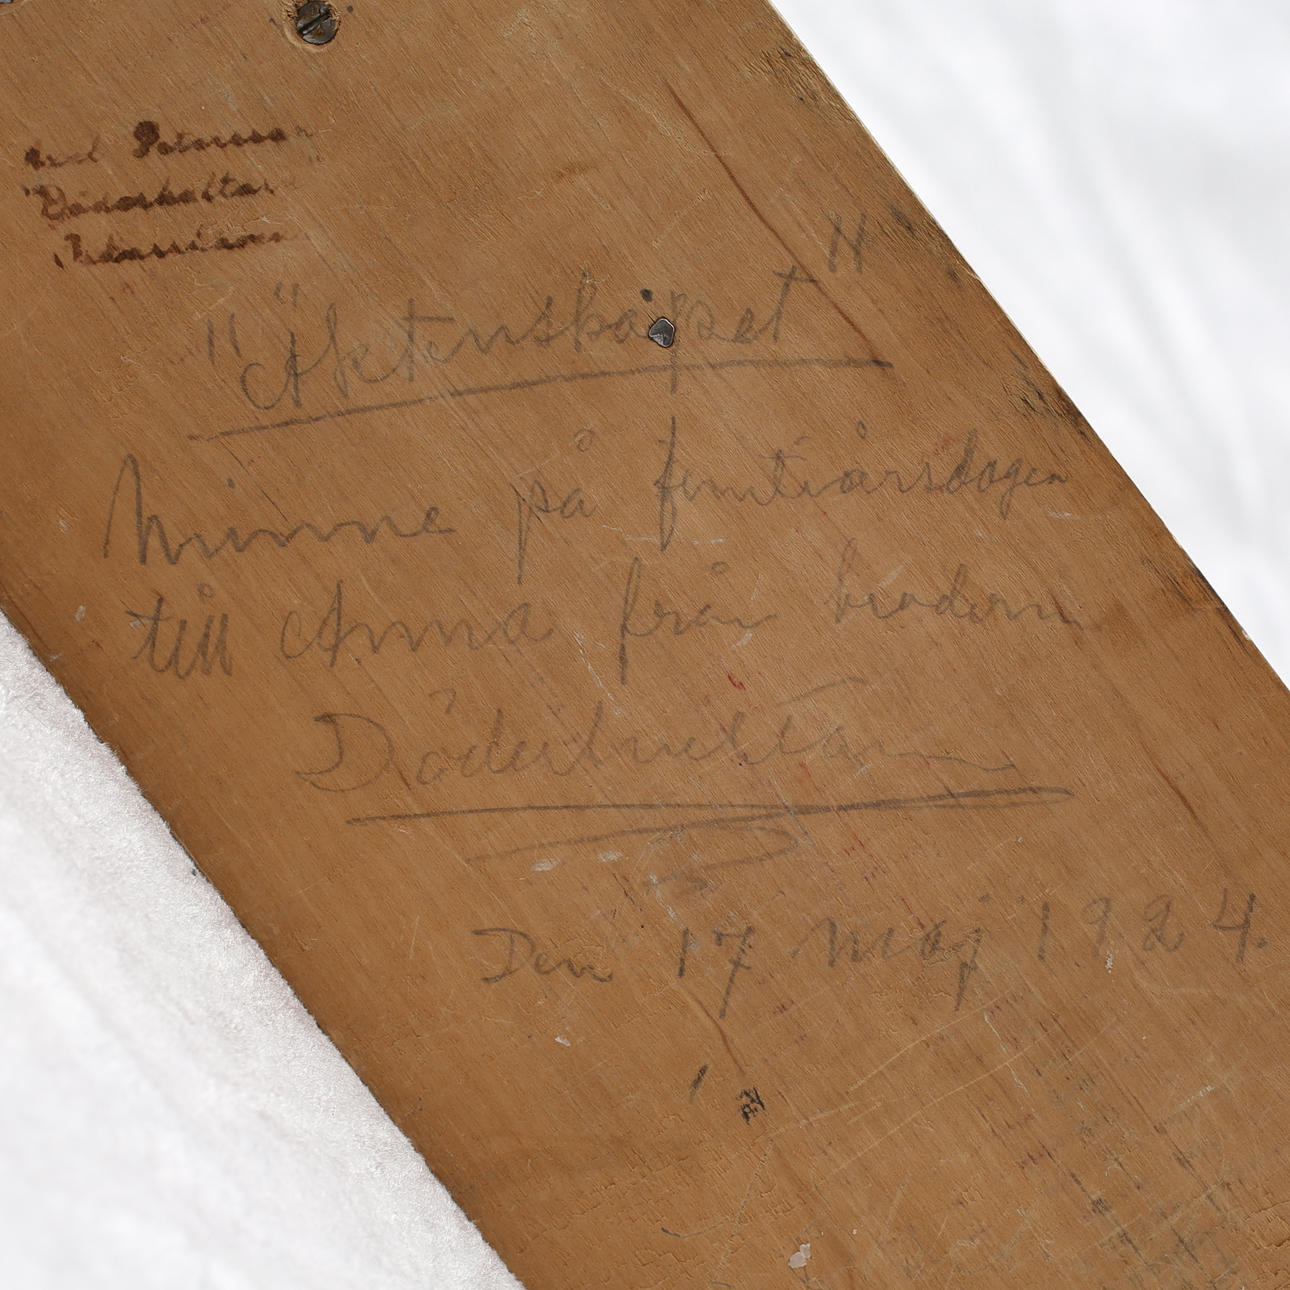 Axel Petersson
"Döderhultarn"
"Äktenskapet"
Minne på femtiårsdagen
till Anna från brodern
Döderhultarn
Den 17 Maj 1924.